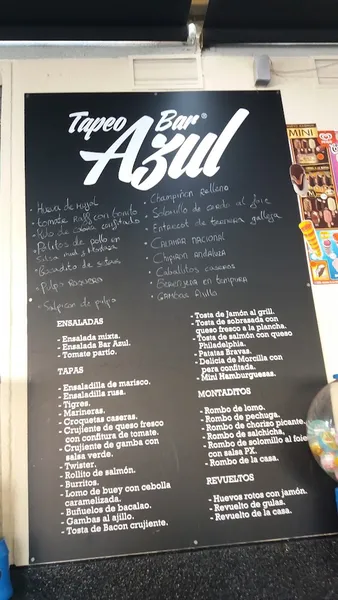 Tapeo Bar®
Azul
Hueva de mujol
tomate Raff con
Queso
Palitos de pollo en
Salsa miel y Mostaza
Pulpo
Salpicon de pulpo
Champiñon relleno
Solomillo de cerdo al foie
Entrecot de ternera gallega
Calamar nacional
Chipiron andaluza
Caballitos caseros
Berenjena en tempura
Gamba Ajillo
ENSALADAS
- Ensalada mixta.
- Ensalada Bar Azul.
- Tomate partio.
TAPAS
- Ensaladilla de marisco.
- Ensaladilla rusa.
- Tigres.
- Marineras.
- Croquetas caseras.
- Crujiente de queso fresco
con confitura de tomate.
- Crujiente de gamba con
salsa verde.
- Twister.
- Rollito de salmón.
- Burritos.
- Lomo de buey con cebolla
caramelizada.
- Buñuelos de bacalao.
- Gambas al ajillo.
- Tosta de Bacon crujiente.
- Tosta de Jamón al grill.
- Tosta de sobrasada con
queso fresco a la plancha.
- Tosta de salmón con queso
Philadelphia.
- Patatas Bravas.
- Delicia de Morcilla con
pera confitada.
- Mini Hamburguesas.
MONTADITOS
- Rombo de lomo.
- Rombo de pechuga.
- Rombo de chorizo picante.
- Rombo de salchicha.
- Rombo de solomillo al foie
con salsa PX.
- Rombo de la casa.
REVUELTOS
- Huevos rotos con jamón.
- Revuelto de gulas.
- Revuelto de la casa.
MINI